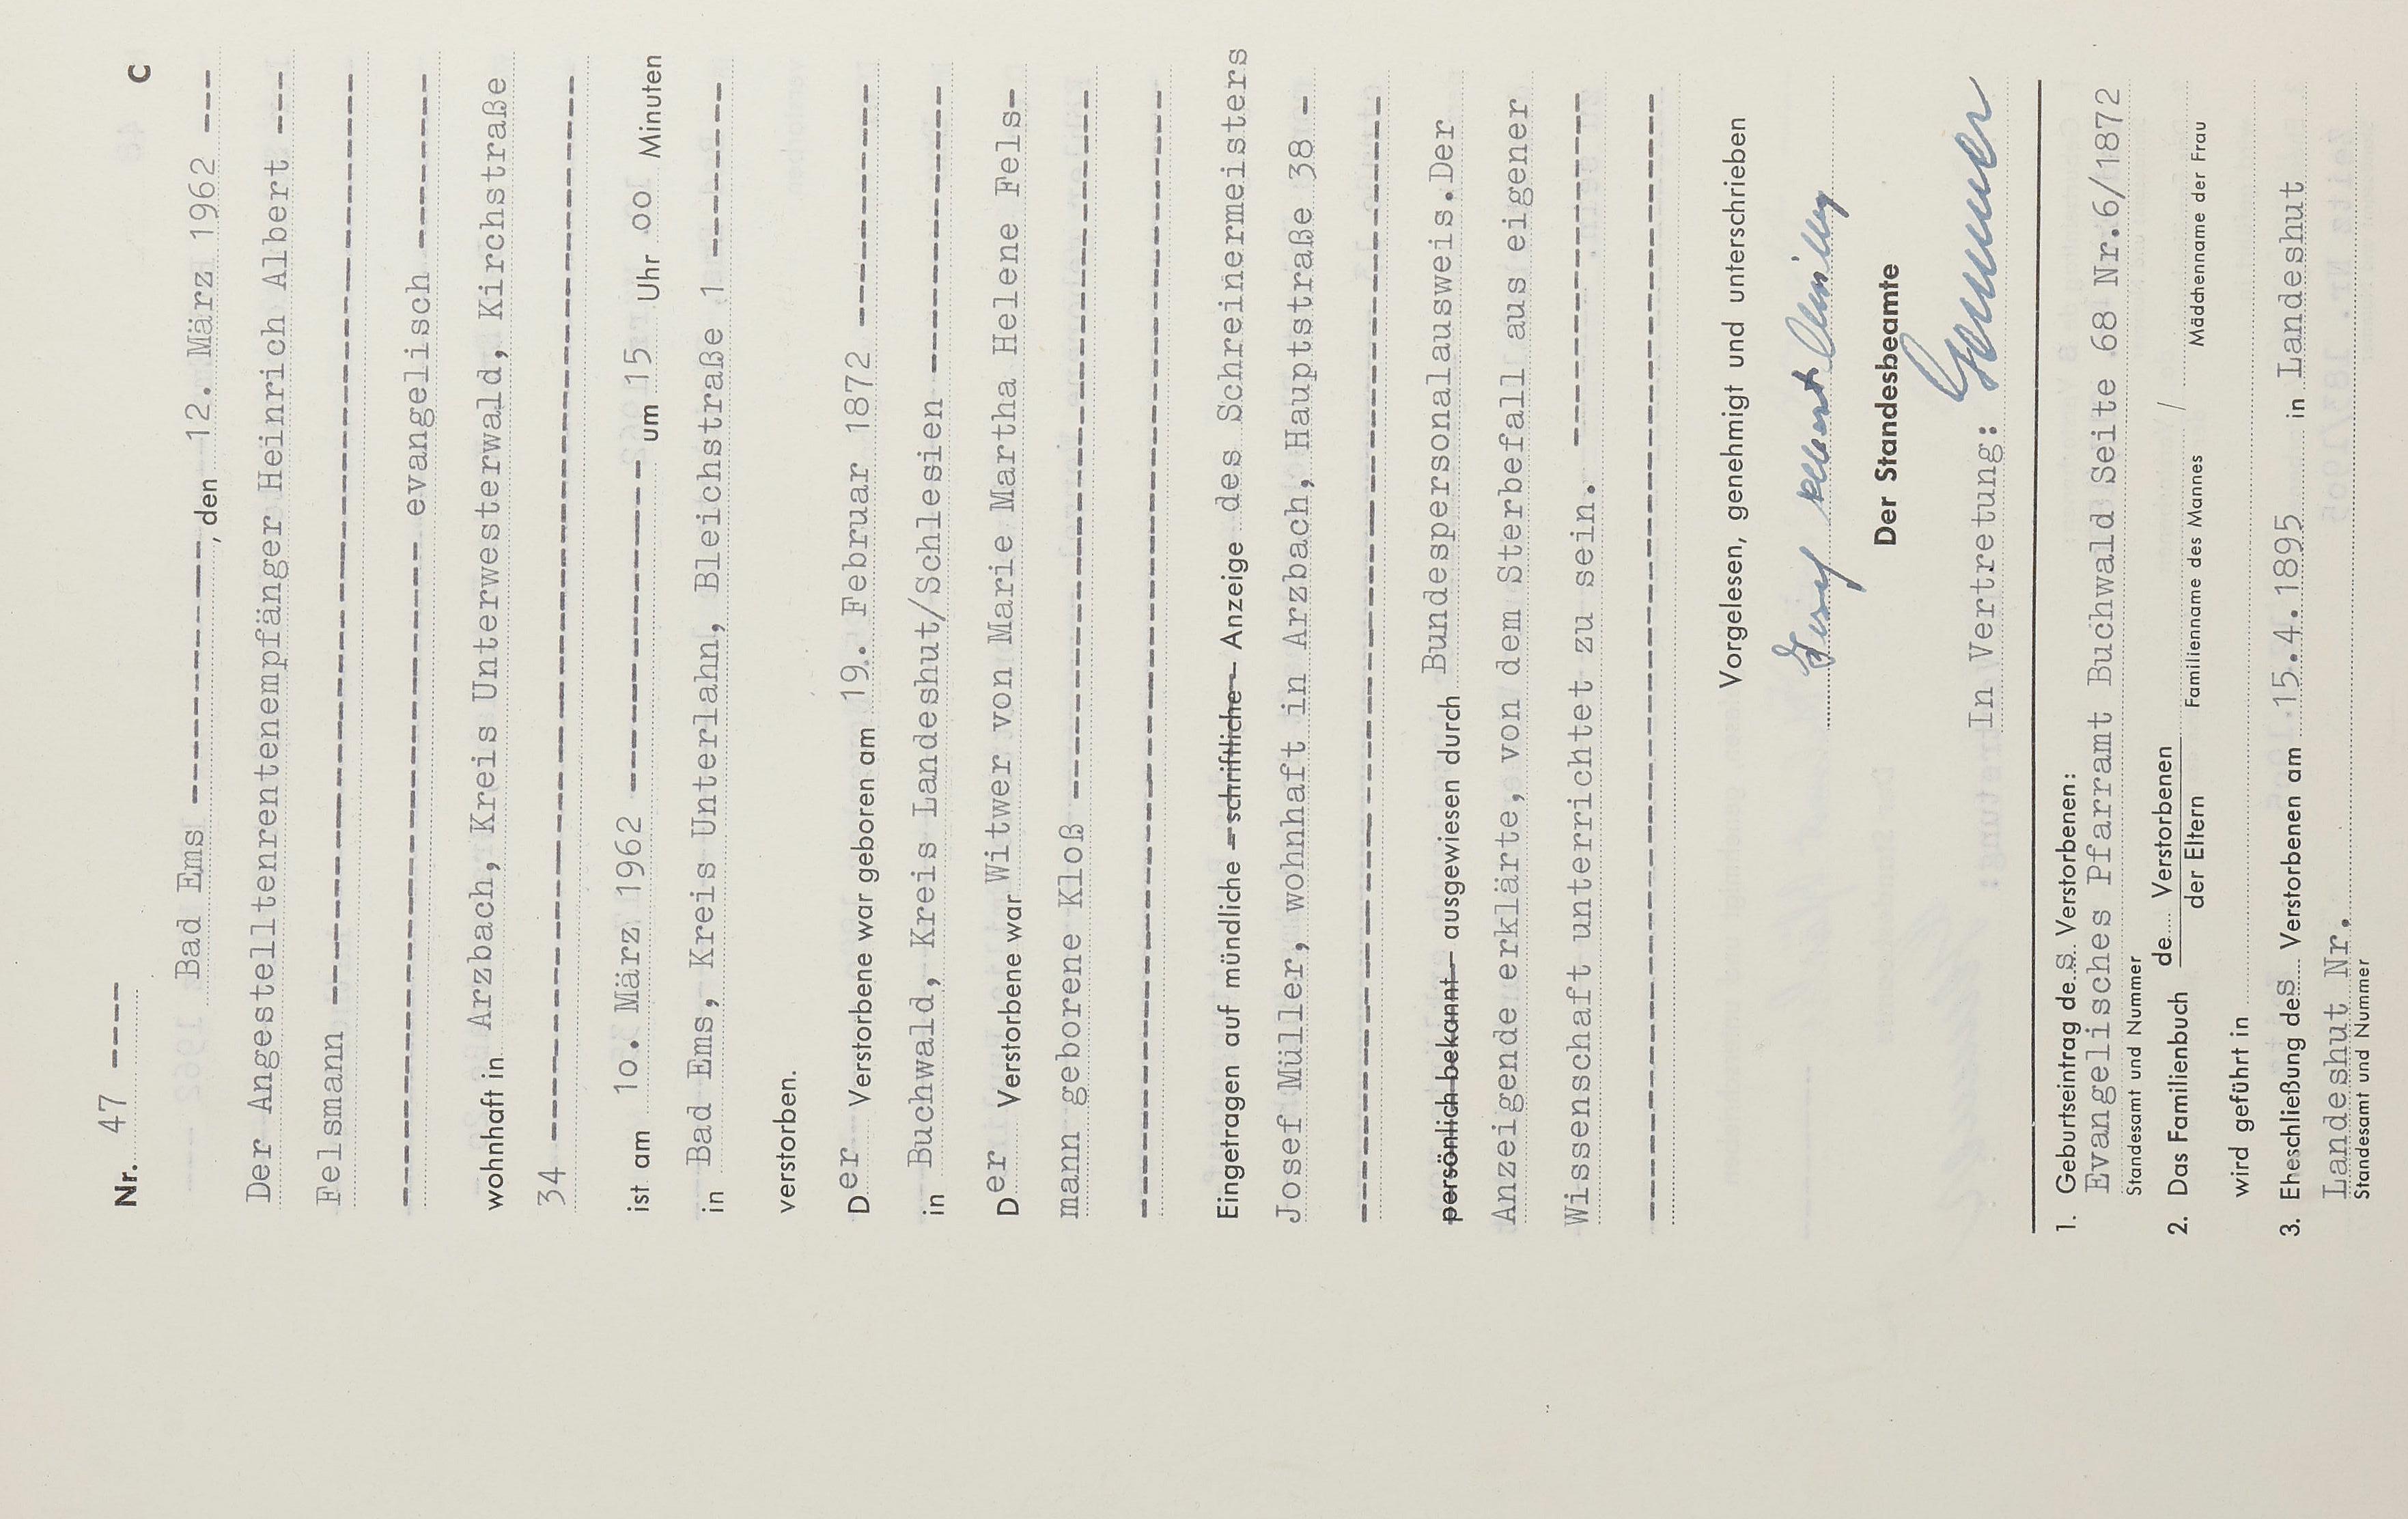 Nr. 47 ---- C
Bad Ems ------------, den 12. März 1962 ---
Der Angestelltenrentenempfänger Heinrich Albert ---
Felsmann ----------------------------------------
------------------- evangelisch --------
wohnhaft in Arzbach, Kreis Unterwesterwald, Kirchstraße
34 ------------------------------------------------
ist am 1o. März 1962 --------------- um 15 Uhr oo Minuten
in Bad Ems, Kreis Unterlahn, Bleichstraße 1 --------
verstorben.
Der Verstorbene war geboren am 19. Februar 1872 -----------
in Buchwald, Kreis Landeshut/Schlesien -------------
Der Verstorbene war Witwer von Marie Martha Helene Fels-
mann geborene Kloß --------------------------------
---------------------------------------------------
Eingetragen auf mündliche - schriftliche - Anzeige des Schreinermeisters
Josef Müller, wohnhaft in Arzbach, Hauptstraße 38 -
---------------------------------------------------
persönlich bekannt - ausgewiesen durch Bundespersonalausweis.Der
Anzeigende erklärte, von dem Sterbefall aus eigener
Wissenschaft unterrichtet zu sein. ----------------
---------------------------------------------------
Vorgelesen, genehmigt und unterschrieben
Der Standesbeamte
In Vertretung:
1. Geburtseintrag des Verstorbenen:
Evangelisches Pfarramt Buchwald Seite 68 Nr.6/1872
Standesamt und Nummer
2. Das Familienbuch de Verstorbenen /
der Eltern Familienname des Mannes Mädchenname der Frau
wird geführt in
3. Eheschließung des Verstorbenen am 15.4.1895 in Landeshut
Landeshut Nr.
Standesamt und Nummer